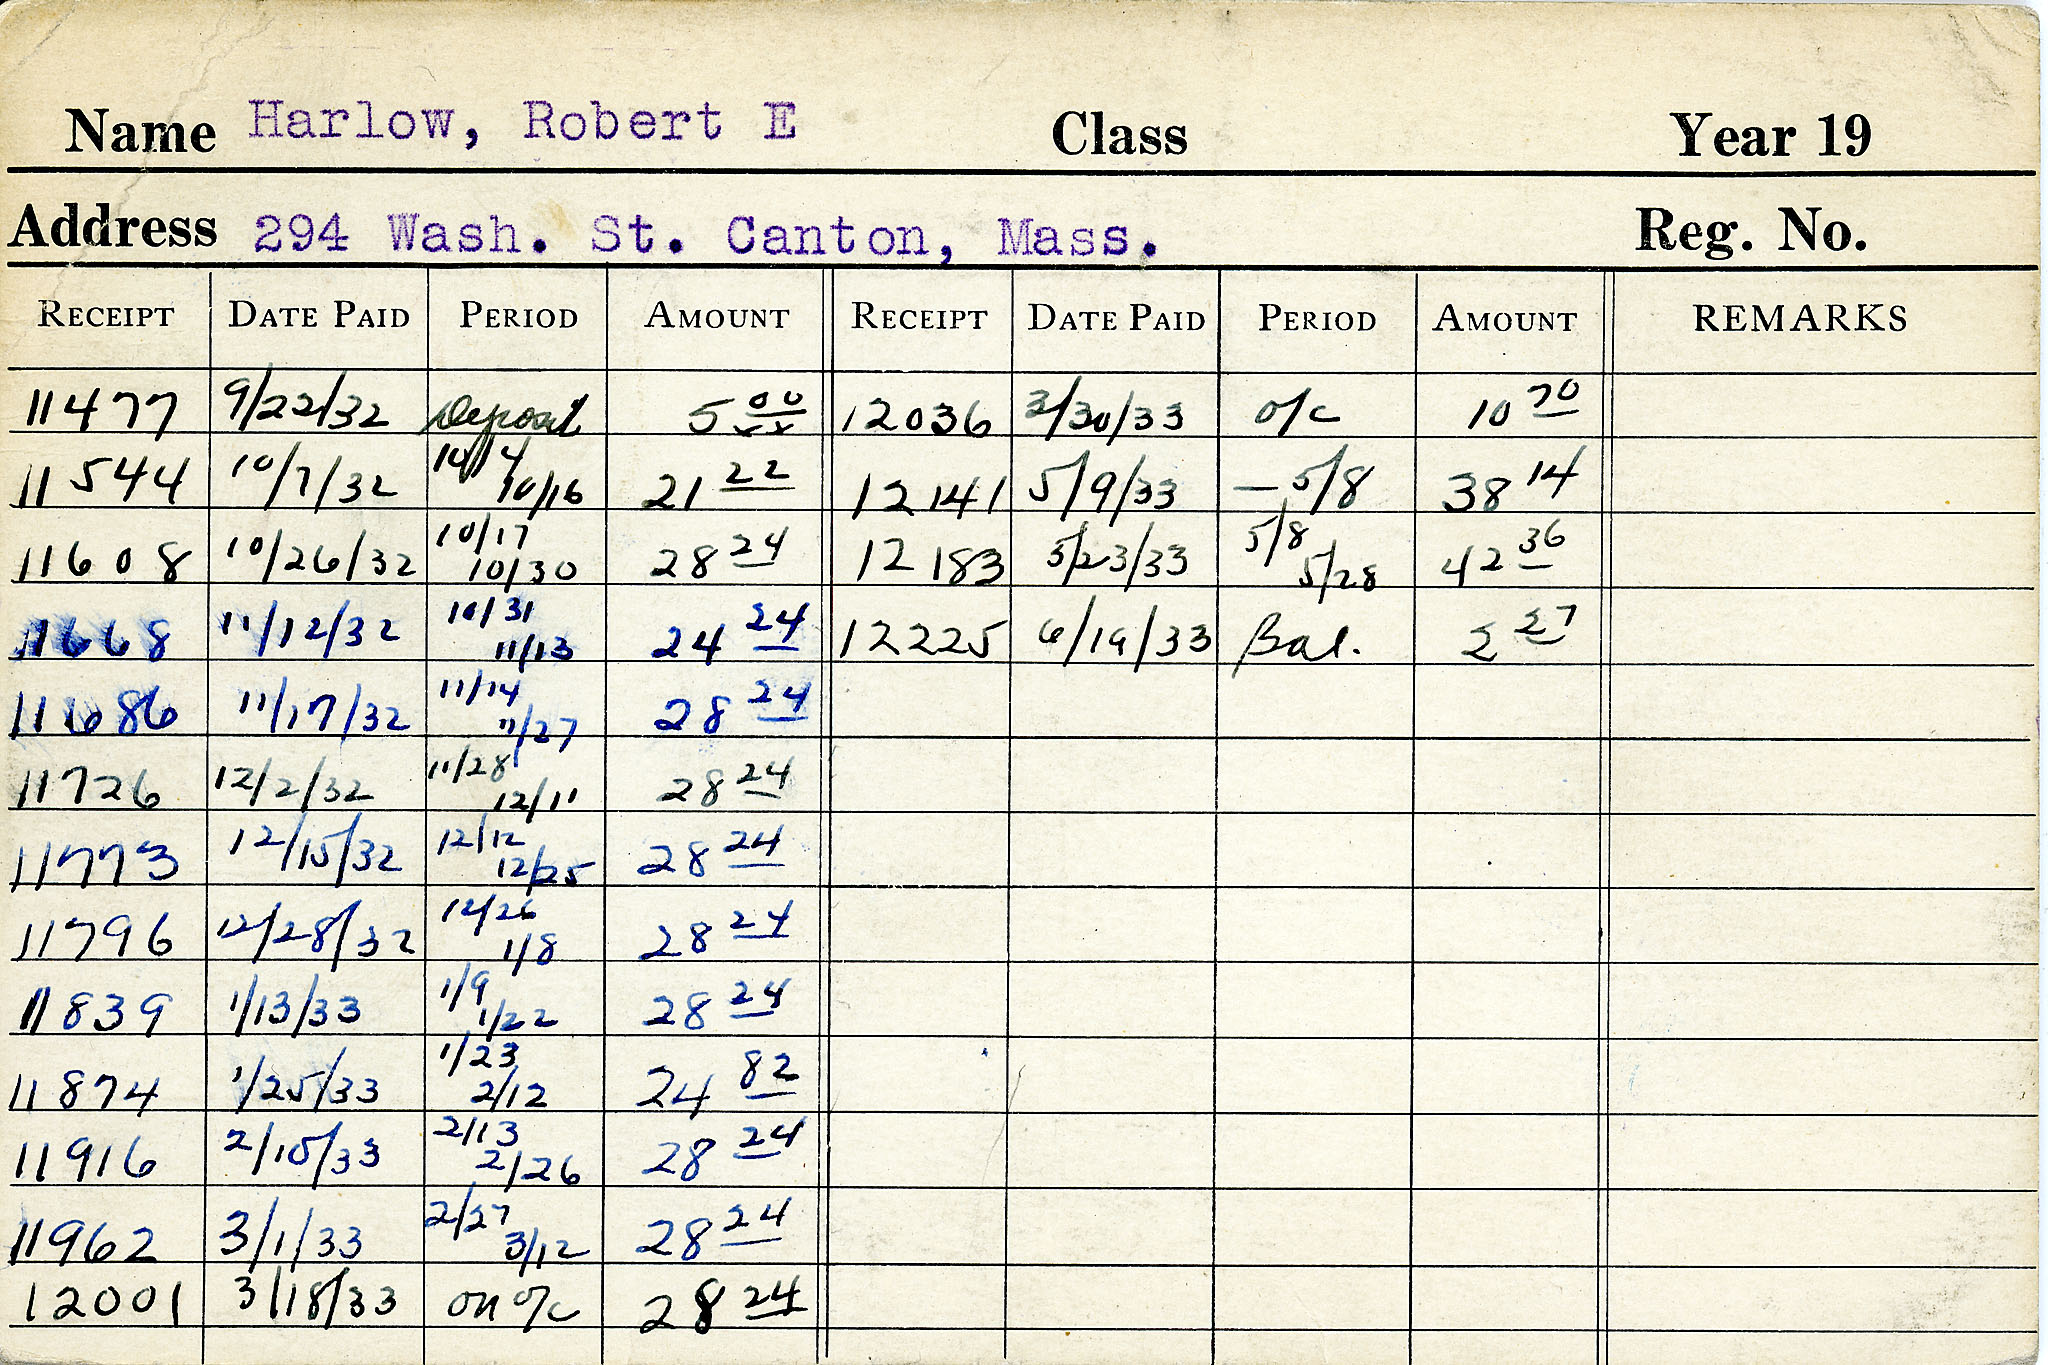 Name Harlow, Robert E Class Year 19
Address 294 Wash. St. Canton, Mass. Reg. No.
RECEIPT DATE PAID PERIOD AMOUNT RECEIPT DATE PAID PERIOD AMOUNT REMARKS
11477 9/22/32 Deposit 5 00 12036 3/30/33 o/c 10 70
11544 10/7/32 10/4 10/16 21 22 12141 5/9/33 — 5/8 38 14
11608 10/26/32 10/17 10/30 28 24 12183 5/23/33 5/8 5/28 42 36
11668 11/12/32 10/31 11/13 24 24 12225 6/19/33 Bal. 2 27
11686 11/17/32 11/14 11/27 28 24
11726 12/2/32 11/28 12/11 28 24
11773 12/15/32 12/12 12/25 28 24
11796 12/28/32 12/26 1/8 28 24
11839 1/13/33 1/9 1/22 28 24
11874 1/25/33 1/23 2/12 24 82
11916 2/10/33 2/13 2/26 28 24
11962 3/1/33 2/27 3/12 28 24
12001 3/18/33 on o/c 28 24